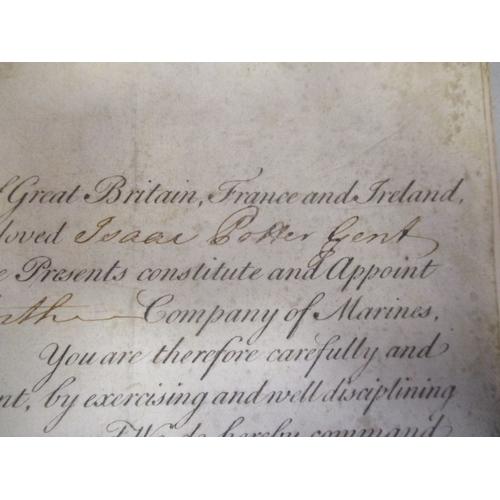 Great Britain, France and Ireland,
loved Isaac Potter Gent
Presents constitute and Appoint
Company of Marines,
You are therefore carefully and
nt, by exercising and well disciplining
do hereby command